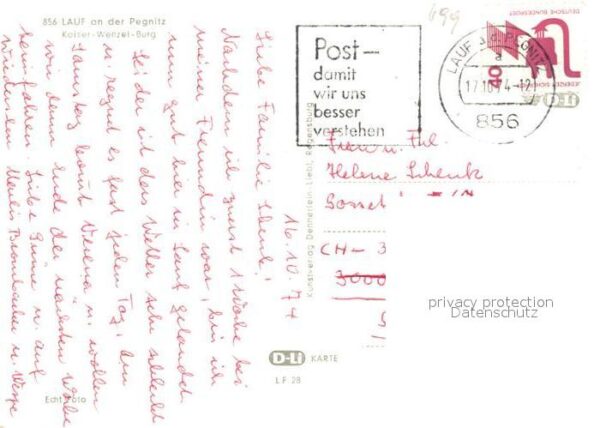 856 LAUF an der Pegnitz
Kaiser-Wenzel-Burg
699
Post-
damit
wir uns
besser
verstehen
LAUF a.d. PEGNITZ
a
17.10.74-12
856
DEUTSCHE BUNDESPOST
40
JEDERZEIT SICHERHEIT
D-Li
16.10.74
Liebe Familie Schenk!
Nachdem ich zuerst 1 Woche bei
meiner Freundin war, bin ich
nun gut hier in Lauf gelandet.
Leider ist das Wetter sehr schlecht
u. regnet es fast jeden Tag. Am
Samstag kommt Verena u. wollen
wir dann Ende der nächsten Woche
heimfahren. Liebe Grüsse u. auf
Wiedersehen
Frau u. Frl.
Helene Schenk
CH-3
3000
Kunstverlag Dennerlein-Liebl, Regensburg
D-Li KARTE
LF 28
Echt Foto
privacy protection
Datenschutz